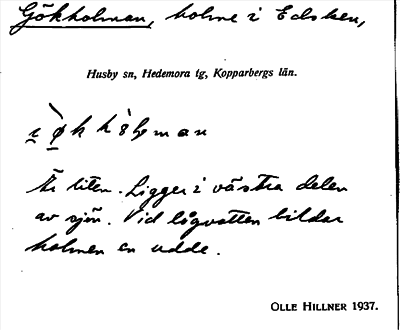 Gökholman, holme i Edsken,
Husby sn, Hedemora tg, Kopparbergs län.
Är liten. Ligger i västra delen
av sjön. Vid lågvatten bildar
holmen en udde.
OLLE HILLNER 1937.